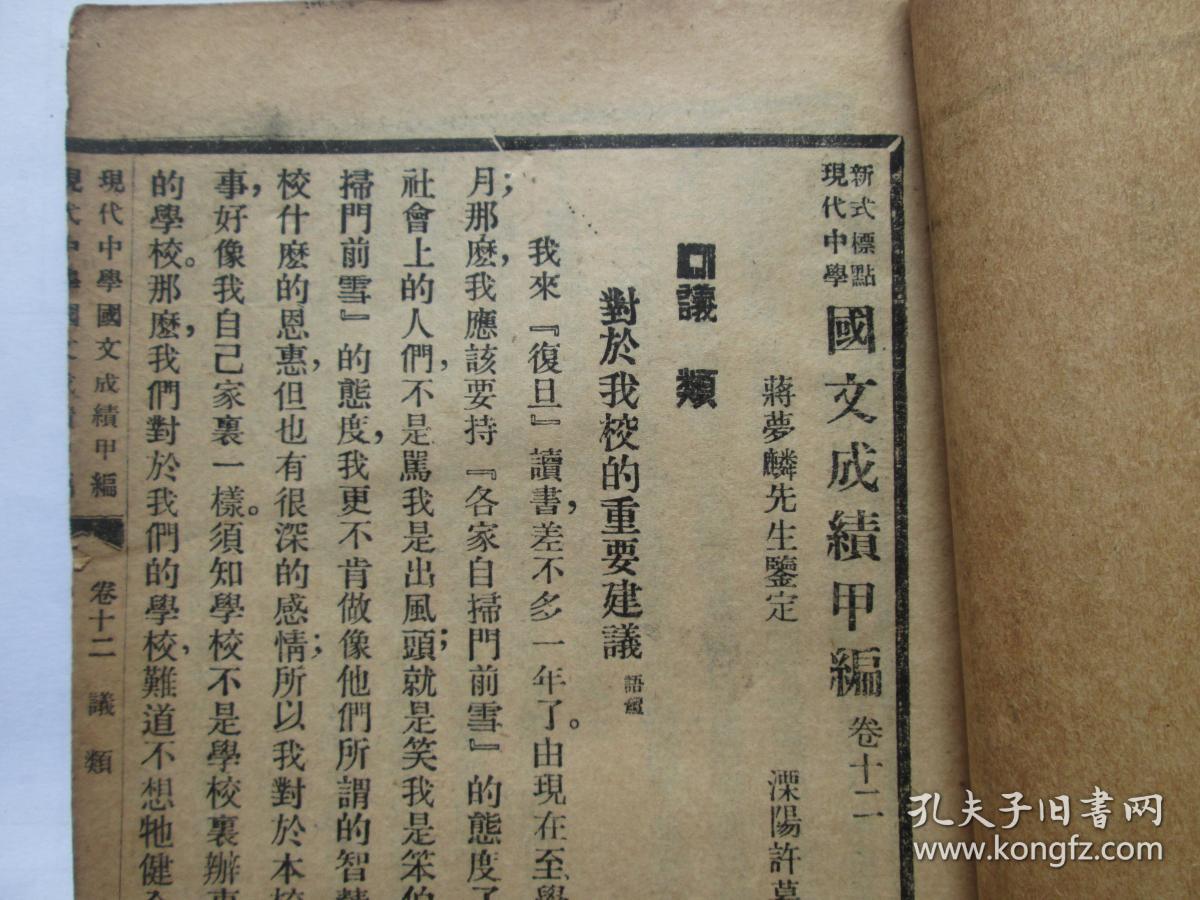 新式標點
現代中學
國文成績甲編 卷十二
蔣夢麟先生鑒定 溧陽許
議類
對於我校的重要建議 語體
我來『復旦』讀書,差不多一年了。由現在至學
月;那麽,我應該要持『各家自掃門前雪』的態度了
社會上的人們,不是罵我是出風頭;就是笑我是笨伯
掃門前雪』的態度,我更不肯做像他們所謂的智
校什麽的恩惠,但也有很深的感情;所以我對於本校
事,好像我自己家裏一樣。須知學校不是學校裏辦事
的學校。那麽,我們對於我們的學校,難道不想牠健全
現代中學國文成績甲編 卷十二 議類
孔夫子旧书网
www.kongfz.com